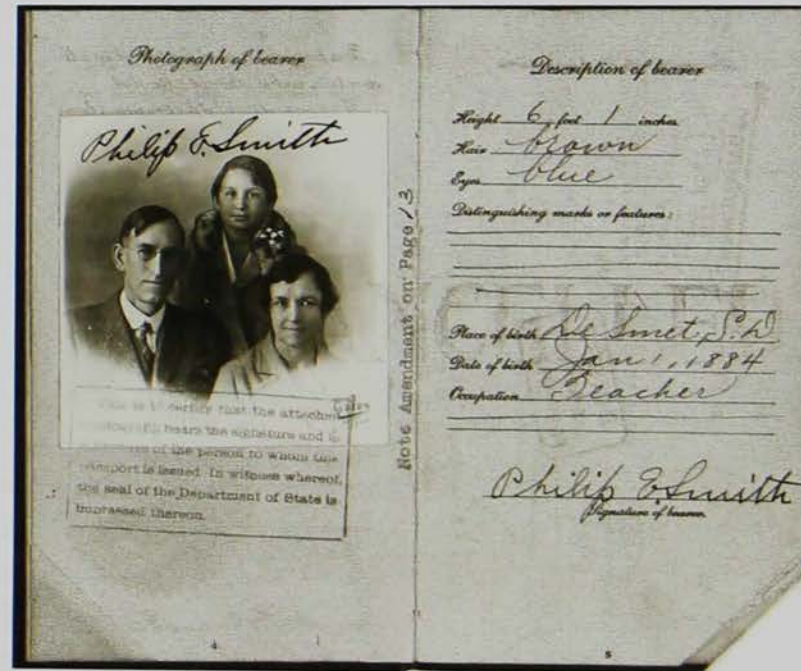 Photograph of bearer
Philip E. Smith
This is to certify that the attached
photograph bears the signature and is
a likeness of the person to whom this
passport is issued. In witness whereof,
the seal of the Department of State is
impressed thereon.
4
Note Amendment on Page 13
Description of bearer
Height 6 feet 1 inches
Hair brown
Eyes blue
Distinguishing marks or features:
Place of birth De Smet, S.D
Date of birth Jan 1, 1884
Occupation Teacher
Philip E. Smith
Signature of bearer.
5